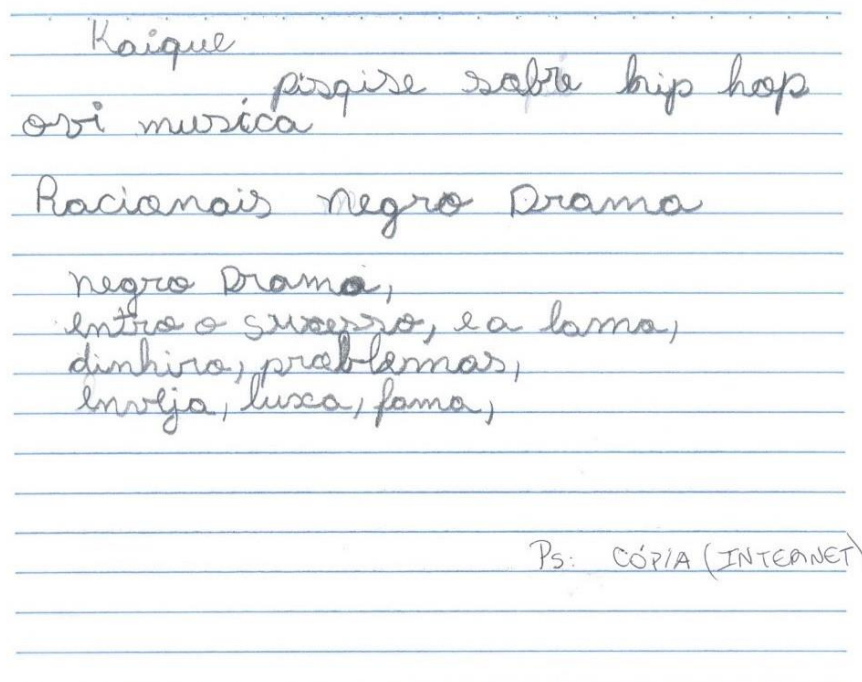 Kaique
pisqise sobre hip hop
ovi musica
Racionais negro Drama
negro Drama,
entre o sucesso, e a lama,
dinhiro, problemas,
enveja, luxo, fama,
Ps: CÓPIA (INTERNET)